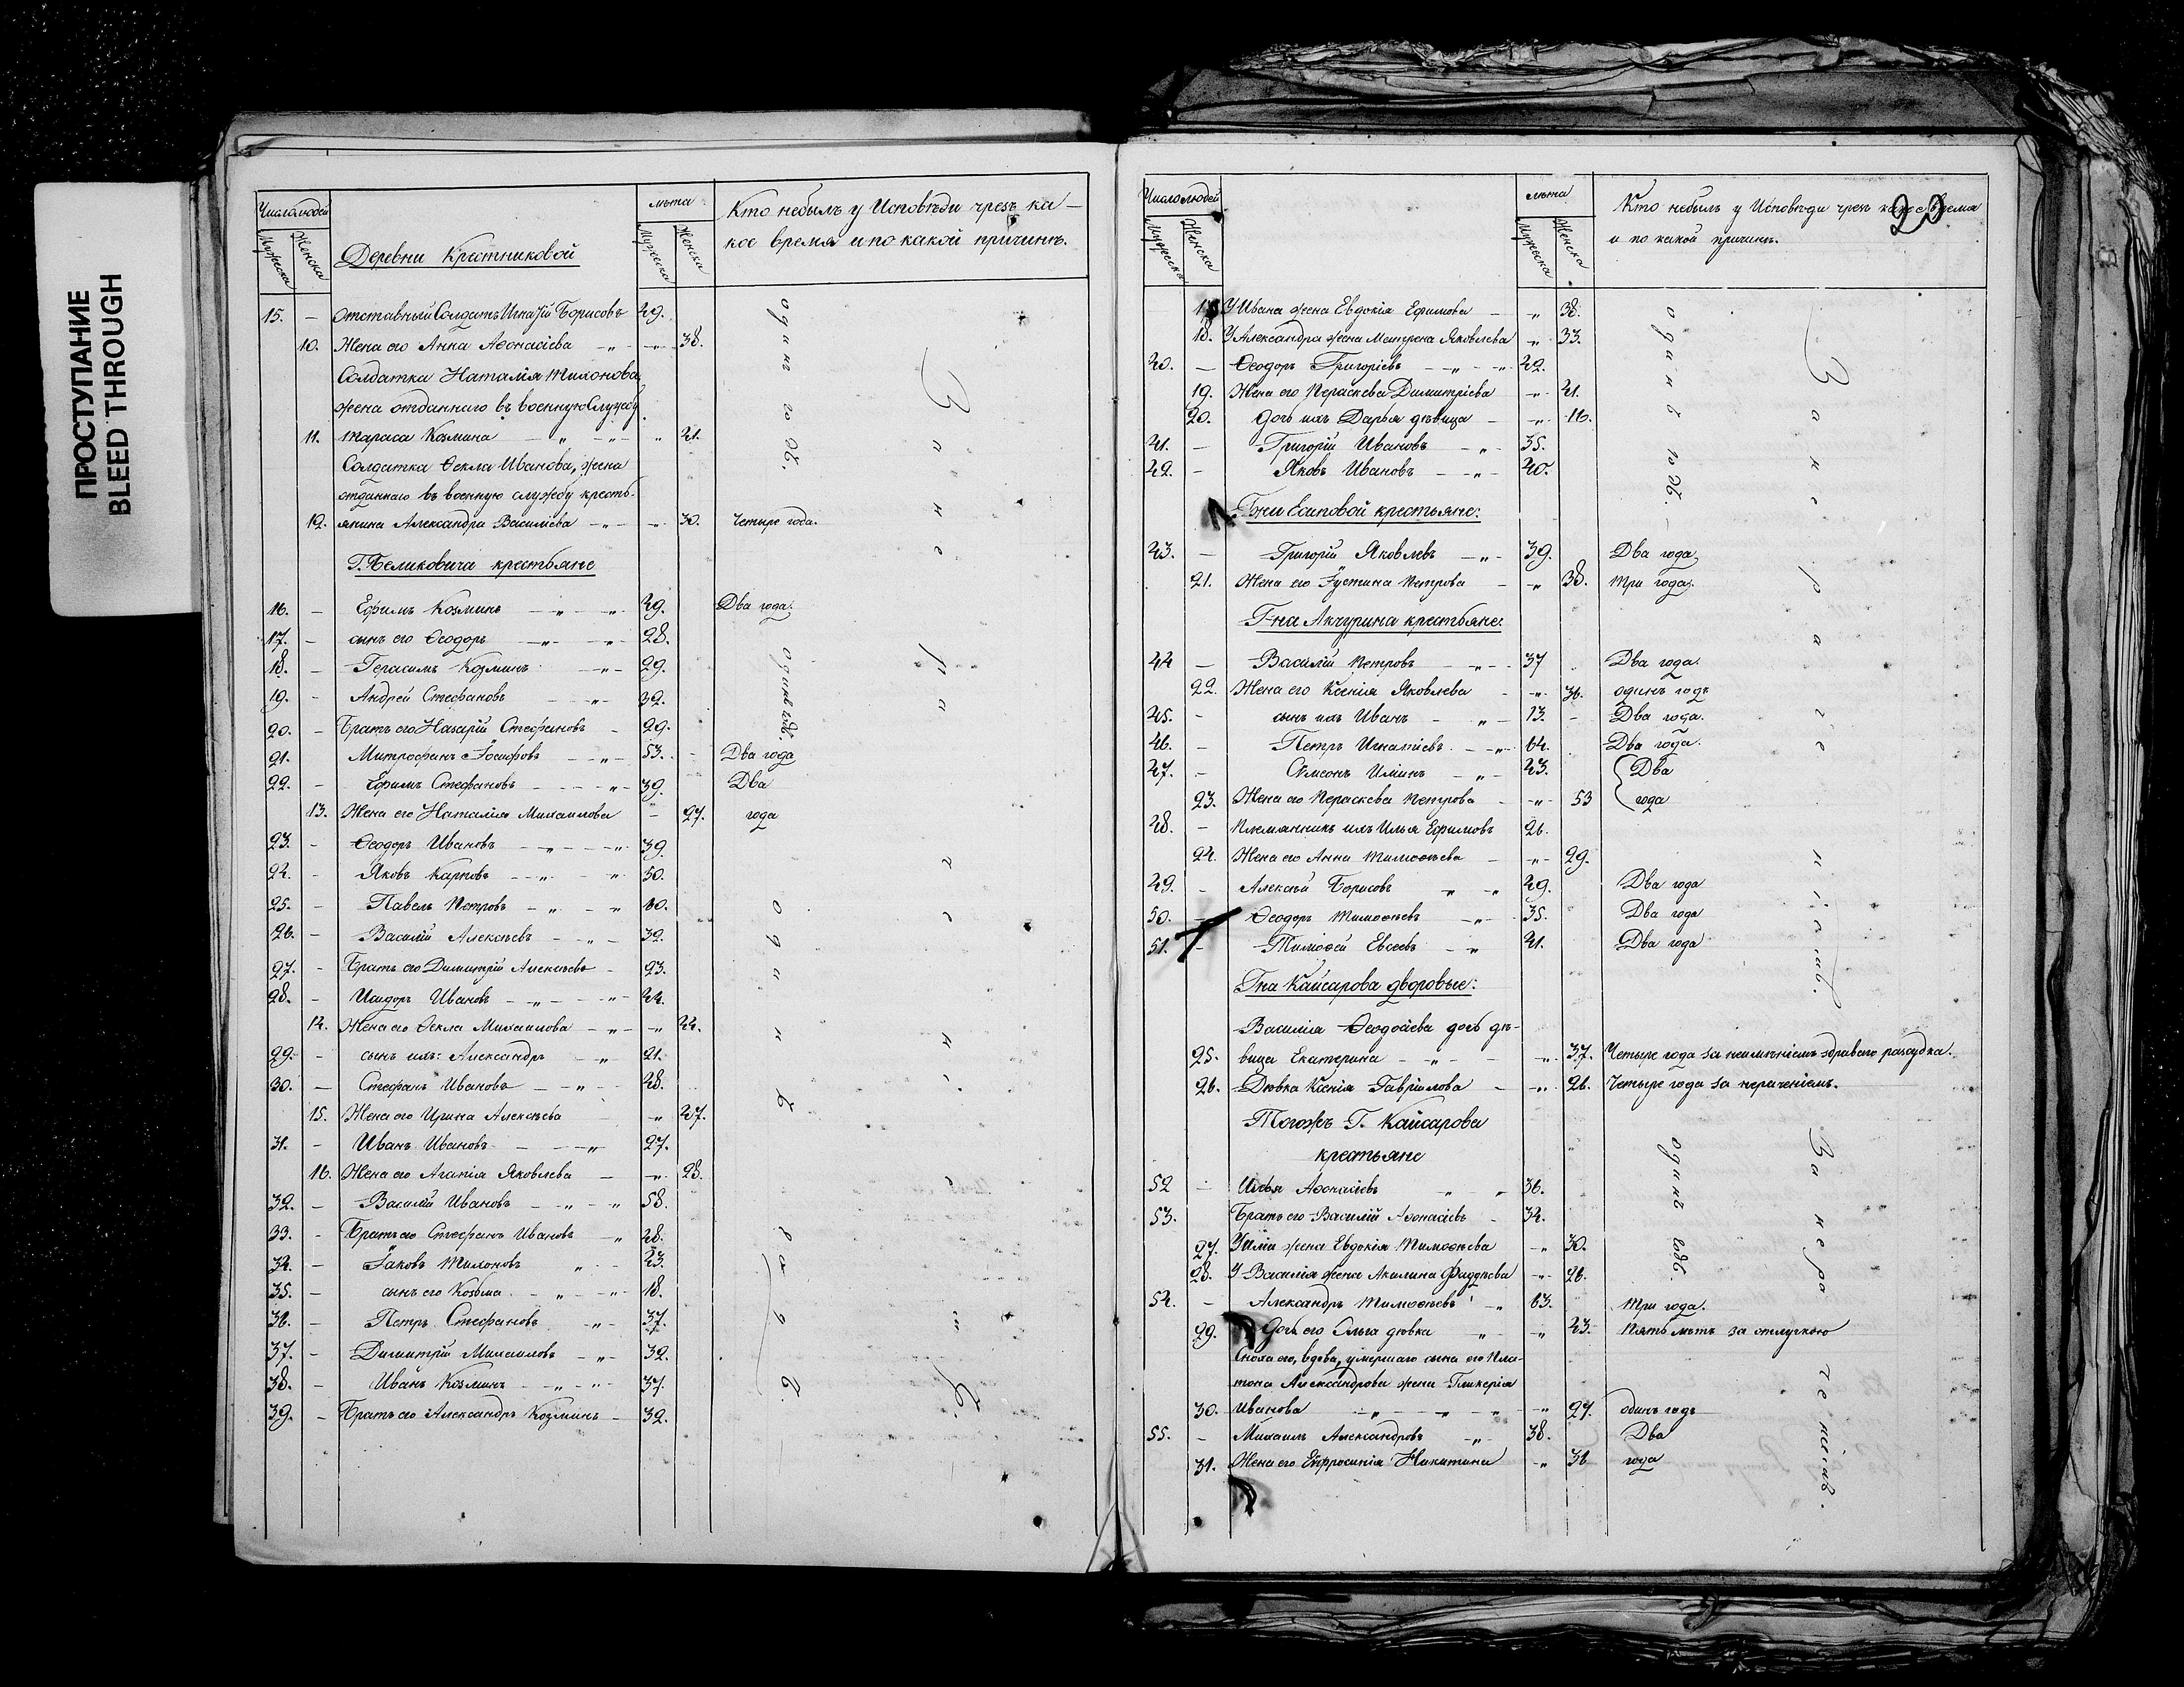 ПРОСТУПАНИЕ
BLEED THROUGH
Число людей
лѣта
Кто небылъ у Исповѣди чрезъ ка-
кое время и по какой причинѣ.
Мужеска Женска Деревни Крестниковой Мужеска Женска
15. — Отставный Солдатъ Борисовъ 49.
10. Жена его Анна Аѳонасіева — „ — 38.
Солдатка Наталія Тихонова,
жена отданнаго въ военную Службу
11. Тараса Козмина — „ — „ 41.
Солдатка Ѳекла Иванова, жена
отданнаго въ военную службу кресть-
12. янина Александра Василіева — „ — 30. Четыре года.
одинъ годъ.
Г. Беликовича крестьяне
16. — Ефимъ Козминъ — „ — 49. Два года.
17. — сынъ его Ѳеодоръ — „ — 28.
18. — Герасимъ Козминъ — „ — 29.
19. — Андрей Стефановъ — „ — 32.
20. — Братъ его Назарій Стефановъ — 29.
одинъ годъ.
21. Митрофанъ Іосифовъ — „ — 53. — Два года
22. — Ефимъ Стефановъ — „ — 39. Два
13. Жена его Наталія Михаилова — „ — 27. года
23. — Ѳеодоръ Ивановъ — „ — 39.
24. — Яковъ Карповъ — „ — 30.
25. — Павелъ Петровъ — „ — 60.
26. — Василій Алексѣевъ — „ — 32.
27. — Братъ его Димитрій Алексѣевъ — 23.
28. — Исидоръ Ивановъ — „ — 44.
14. Жена его Ѳекла Михаилова — „ — 44.
29. — сынъ ихъ: Александръ — „ 21.
30. — Стефанъ Ивановъ — „ — 48.
15. Жена его Ирина Алексѣева — „ 47.
31. — Иванъ Ивановъ — „ 27.
16. Жена его Агапія Яковлева — „ — 28.
32. — Василій Ивановъ — „ — 58.
33. — Братъ его Стефанъ Ивановъ — „ 48.
34. — Іаковъ Тихоновъ „ — 43.
35. — сынъ его Козьма — „ — 18.
36. — Петръ Стефановъ — „ — 37.
37. — Димитрій Михаиловъ — „ — 32.
38. — Иванъ Козминъ — „ — 37.
39. — Братъ его Александръ Козминъ — 32.
одинъ годъ.
За нераченіемъ.
Число людей
лѣта
Кто небылъ у Исповѣди чрезъ какое время
и по какой причинѣ.
Мужеска Женска Мужеска Женска
17. У Ивана жена Евдокія Ефимова — „ 38.
18. У Александра жена Матрена Яковлева „ 33.
40. — Ѳеодоръ Григоріевъ — „ — 42.
19. Жена его Параскева Димитріева — „ 41.
20. дочь ихъ Дарья дѣвица — „ 16.
41. — Григорій Ивановъ — „ — 35.
42. — Яковъ Ивановъ — „ — 40.
одинъ годъ.
Г-жи Есиповой крестьяне:
43. — Григорій Яковлевъ — „ — 39. Два года
21. Жена его Іустина Петрова — „ 38. Три года.
Г-на Акчурина крестьяне:
44 — Василій Петровъ — „ — 37 Два года.
22. Жена его Ксенія Яковлева — „ 36. одинъ годъ
45. — сынъ ихъ Иванъ — „ — 13. — Два года.
46. — Петръ Игнатіевъ — „ — 64. Два года.
47. — Симеонъ Илiинъ — „ — 43. Два
23. Жена его Параскева Петрова — „ 53 года
48. — Племянникъ ихъ Илья Ефимовъ 26.
24. Жена его Анна Тимоѳѣева — „ 29.
49. — Алексѣй Борисовъ „ „ 49. Два года
50. — Ѳеодоръ Тимоѳѣевъ — „ — 35. Два года
51. — Тимоѳей Евсеевъ — „ 41. Два года
Г-на Кайсарова дворовые:
Василія Ѳеодосіева дочь дѣ-
25. вица Екатерина — „ — „ 37. Четыре года за неимѣніемъ здраваго разсудка.
26. Дѣвка Ксенія Гавріилова — „ 26. Четыре года за нераченіемъ.
Тогожъ Г. Кайсарова
крестьяне
52 — Илья Аѳонасіевъ „ „ 36.
53. Братъ его Василій Аѳонасіевъ — 34.
27. У Иліи жена Евдокія Тимоѳѣева — „ 30.
28. У Василія жена Акилина Фаддѣева — „ 26.
одинъ годъ.
54. — Александръ Тимоѳѣевъ — „ 63. Три года.
29. Дочь его Ольга дѣвка „ — „ 43. Пять лѣтъ за отлучкою
Сноха его, вдова, умершаго сына его Пла-
тона Александрова жена Гликерія
30. Иванова — „ — „ 27. одинъ годъ
55. — Михаилъ Александровъ — „ 38. Два
31. Жена его Евфросинія Никитина — „ 31 года
За нераченіемъ.
За нераченіемъ.